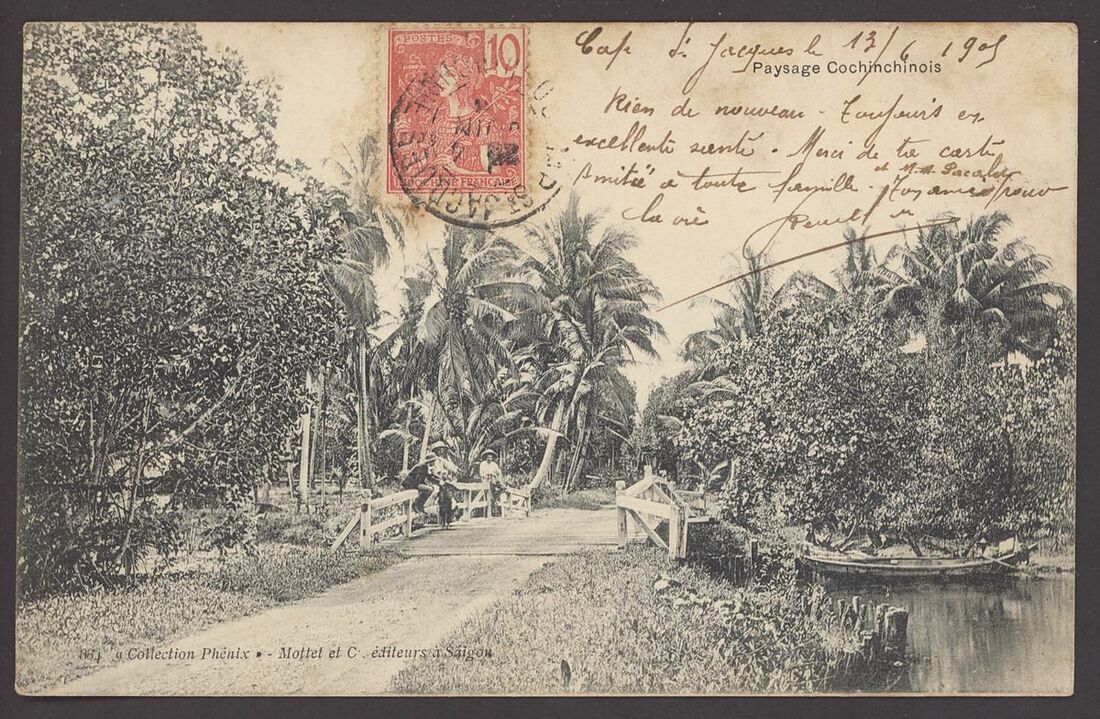 POSTES
10
INDOCHINE FRANÇAISE
ST JACQUES
Cap St Jacques le 13/6 1905
Paysage Cochinchinois
Rien de nouveau - Toujours en
excellente santé. Merci de ta carte
Amitié à toute famille
et
pour
la vie
834 "Collection Phénix" - Mottet et C. éditeurs à Saigon